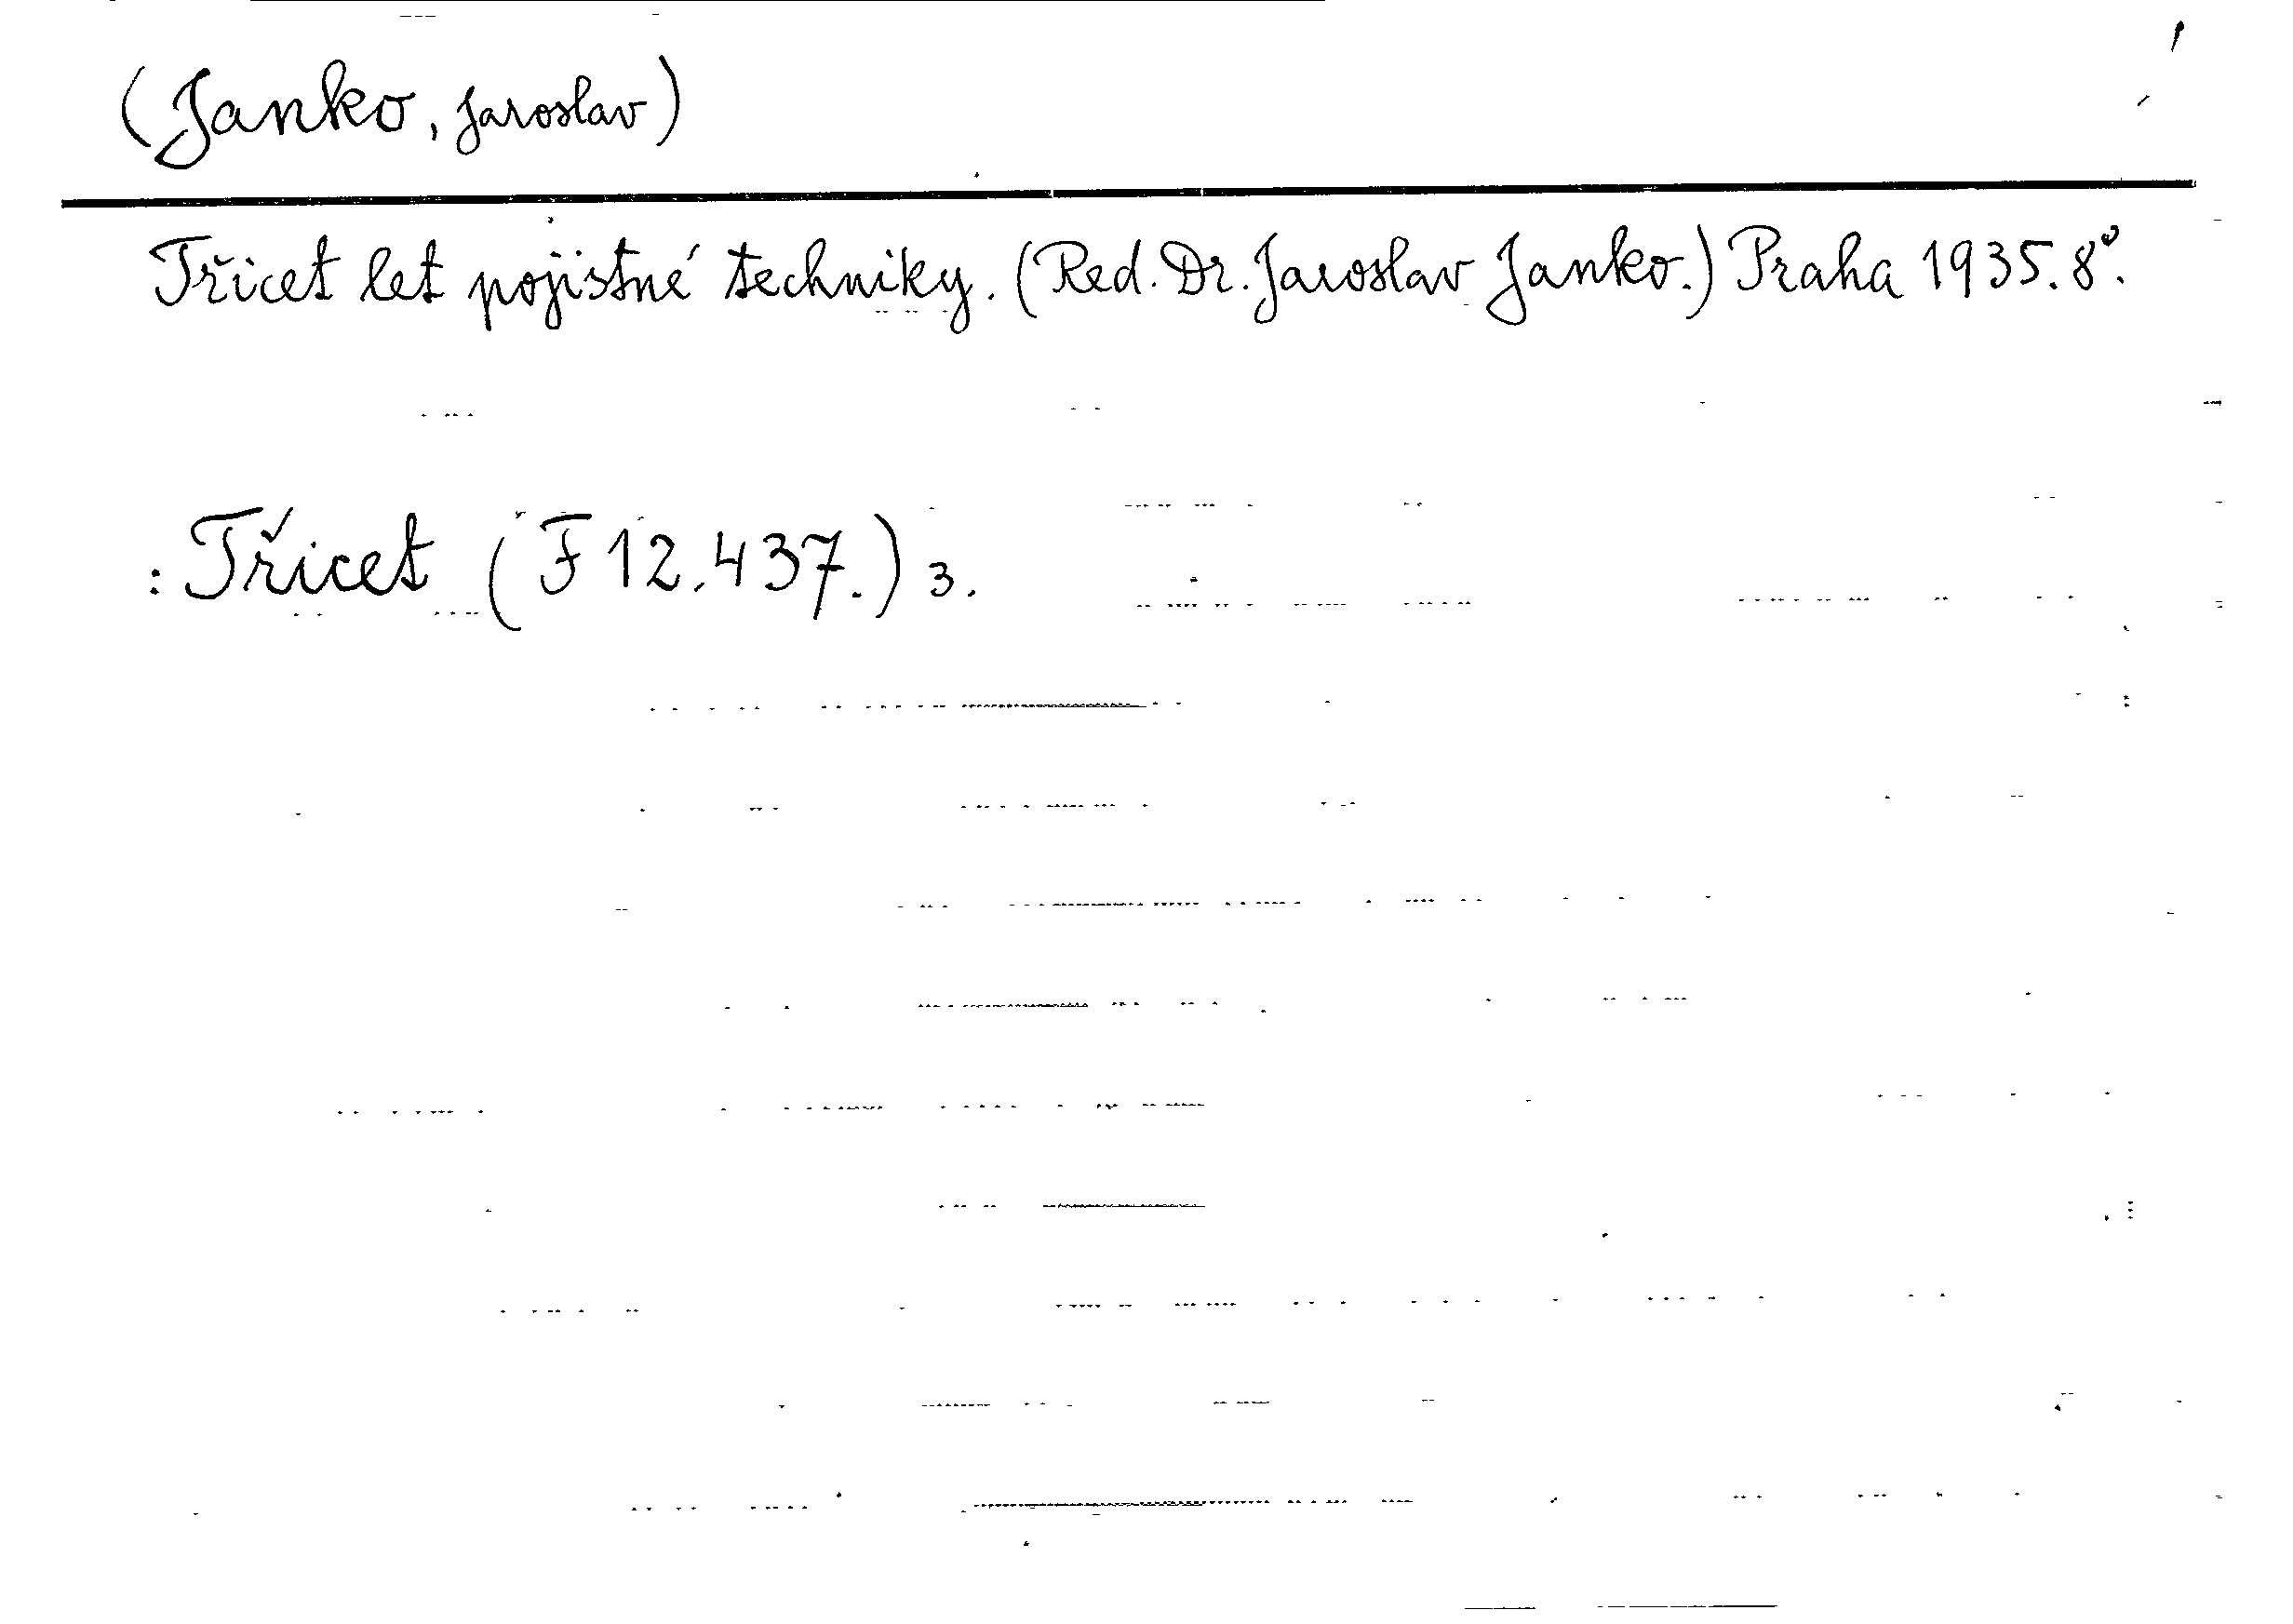 (Janko, Jaroslav)
Třicet let pojistné techniky. (Red. Dr. Jaroslav Janko.) Praha 1935. 8°.
: Třicet (F 12.437.) 3.